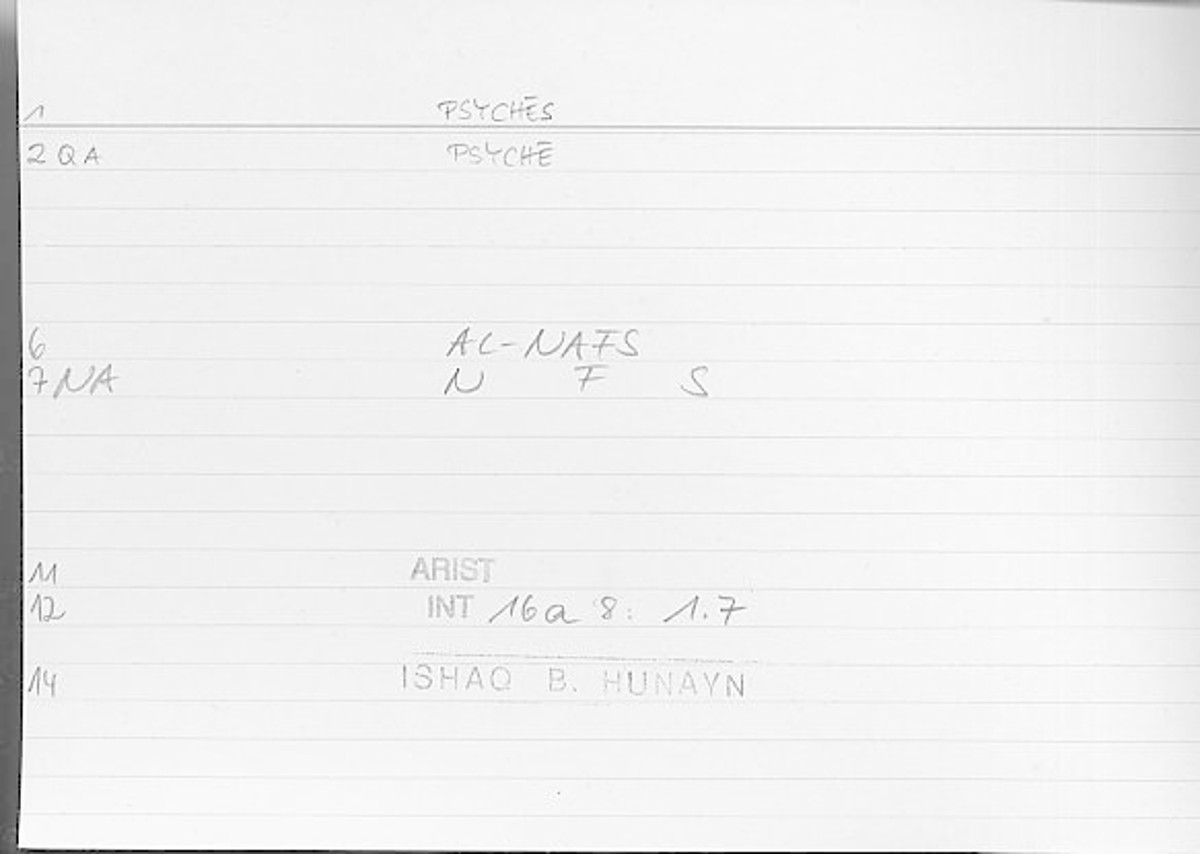 1 PSYCHĒS
2 Q A PSYCHĒ
6 AL-NAFS
7 NA N F S
11 ARIST
12 INT 16a 8: 1.7
14 ISHAQ B. HUNAYN